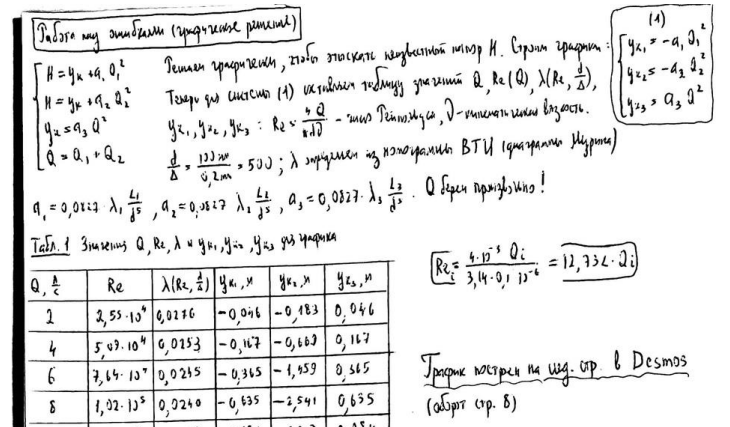 Работа над ошибками (графическое решение)
H = y_k + a_1 Q_1^2
H = y_k + a_2 Q_2^2
y_k = a_3 Q^2
Q = Q_1 + Q_2
Решаем графически, чтобы отыскать неизвестный напор H. Строим графики:
(1)
y_{k1} = -a_1 Q_1^2
y_{k2} = -a_2 Q_2^2
y_{k3} = a_3 Q^2
Теперь для системы (1) составляем таблицу значений Q, Re(Q), λ(Re, d/Δ),
y_{k1}, y_{k2}, y_{k3} : Re = 4Q/πdν - число Рейнольдса, ν - кинематическая вязкость.
d/Δ = 100 мм/0,2 мм = 500 ; λ определяем из номограммы ВТИ (диаграммы Мурина)
a_1 = 0,0827 · λ_1 L_1/d^5 , a_2 = 0,0827 λ_2 L_2/d^5 , a_3 = 0,0827 · λ_3 L_3/d^5 . Q берем произвольно!
Табл. 1 Значения Q, Re, λ и y_{k1}, y_{k2}, y_{k3} для графика
Re_i = 4·10^{-3} Q_i / 3,14·0,1·10^{-6} = 12,732 · Q_i
Q, л/с Re λ(Re, d/Δ) y_{k1}, м y_{k2}, м y_{k3}, м
2 2,55·10^4 0,0276 -0,046 -0,183 0,046
4 5,09·10^4 0,0253 -0,167 -0,669 0,167
6 7,64·10^4 0,0245 -0,365 -1,459 0,365
8 1,02·10^5 0,0240 -0,635 -2,541 0,635
График построен на изд. стр. в Desmos
(оборот стр. 8)